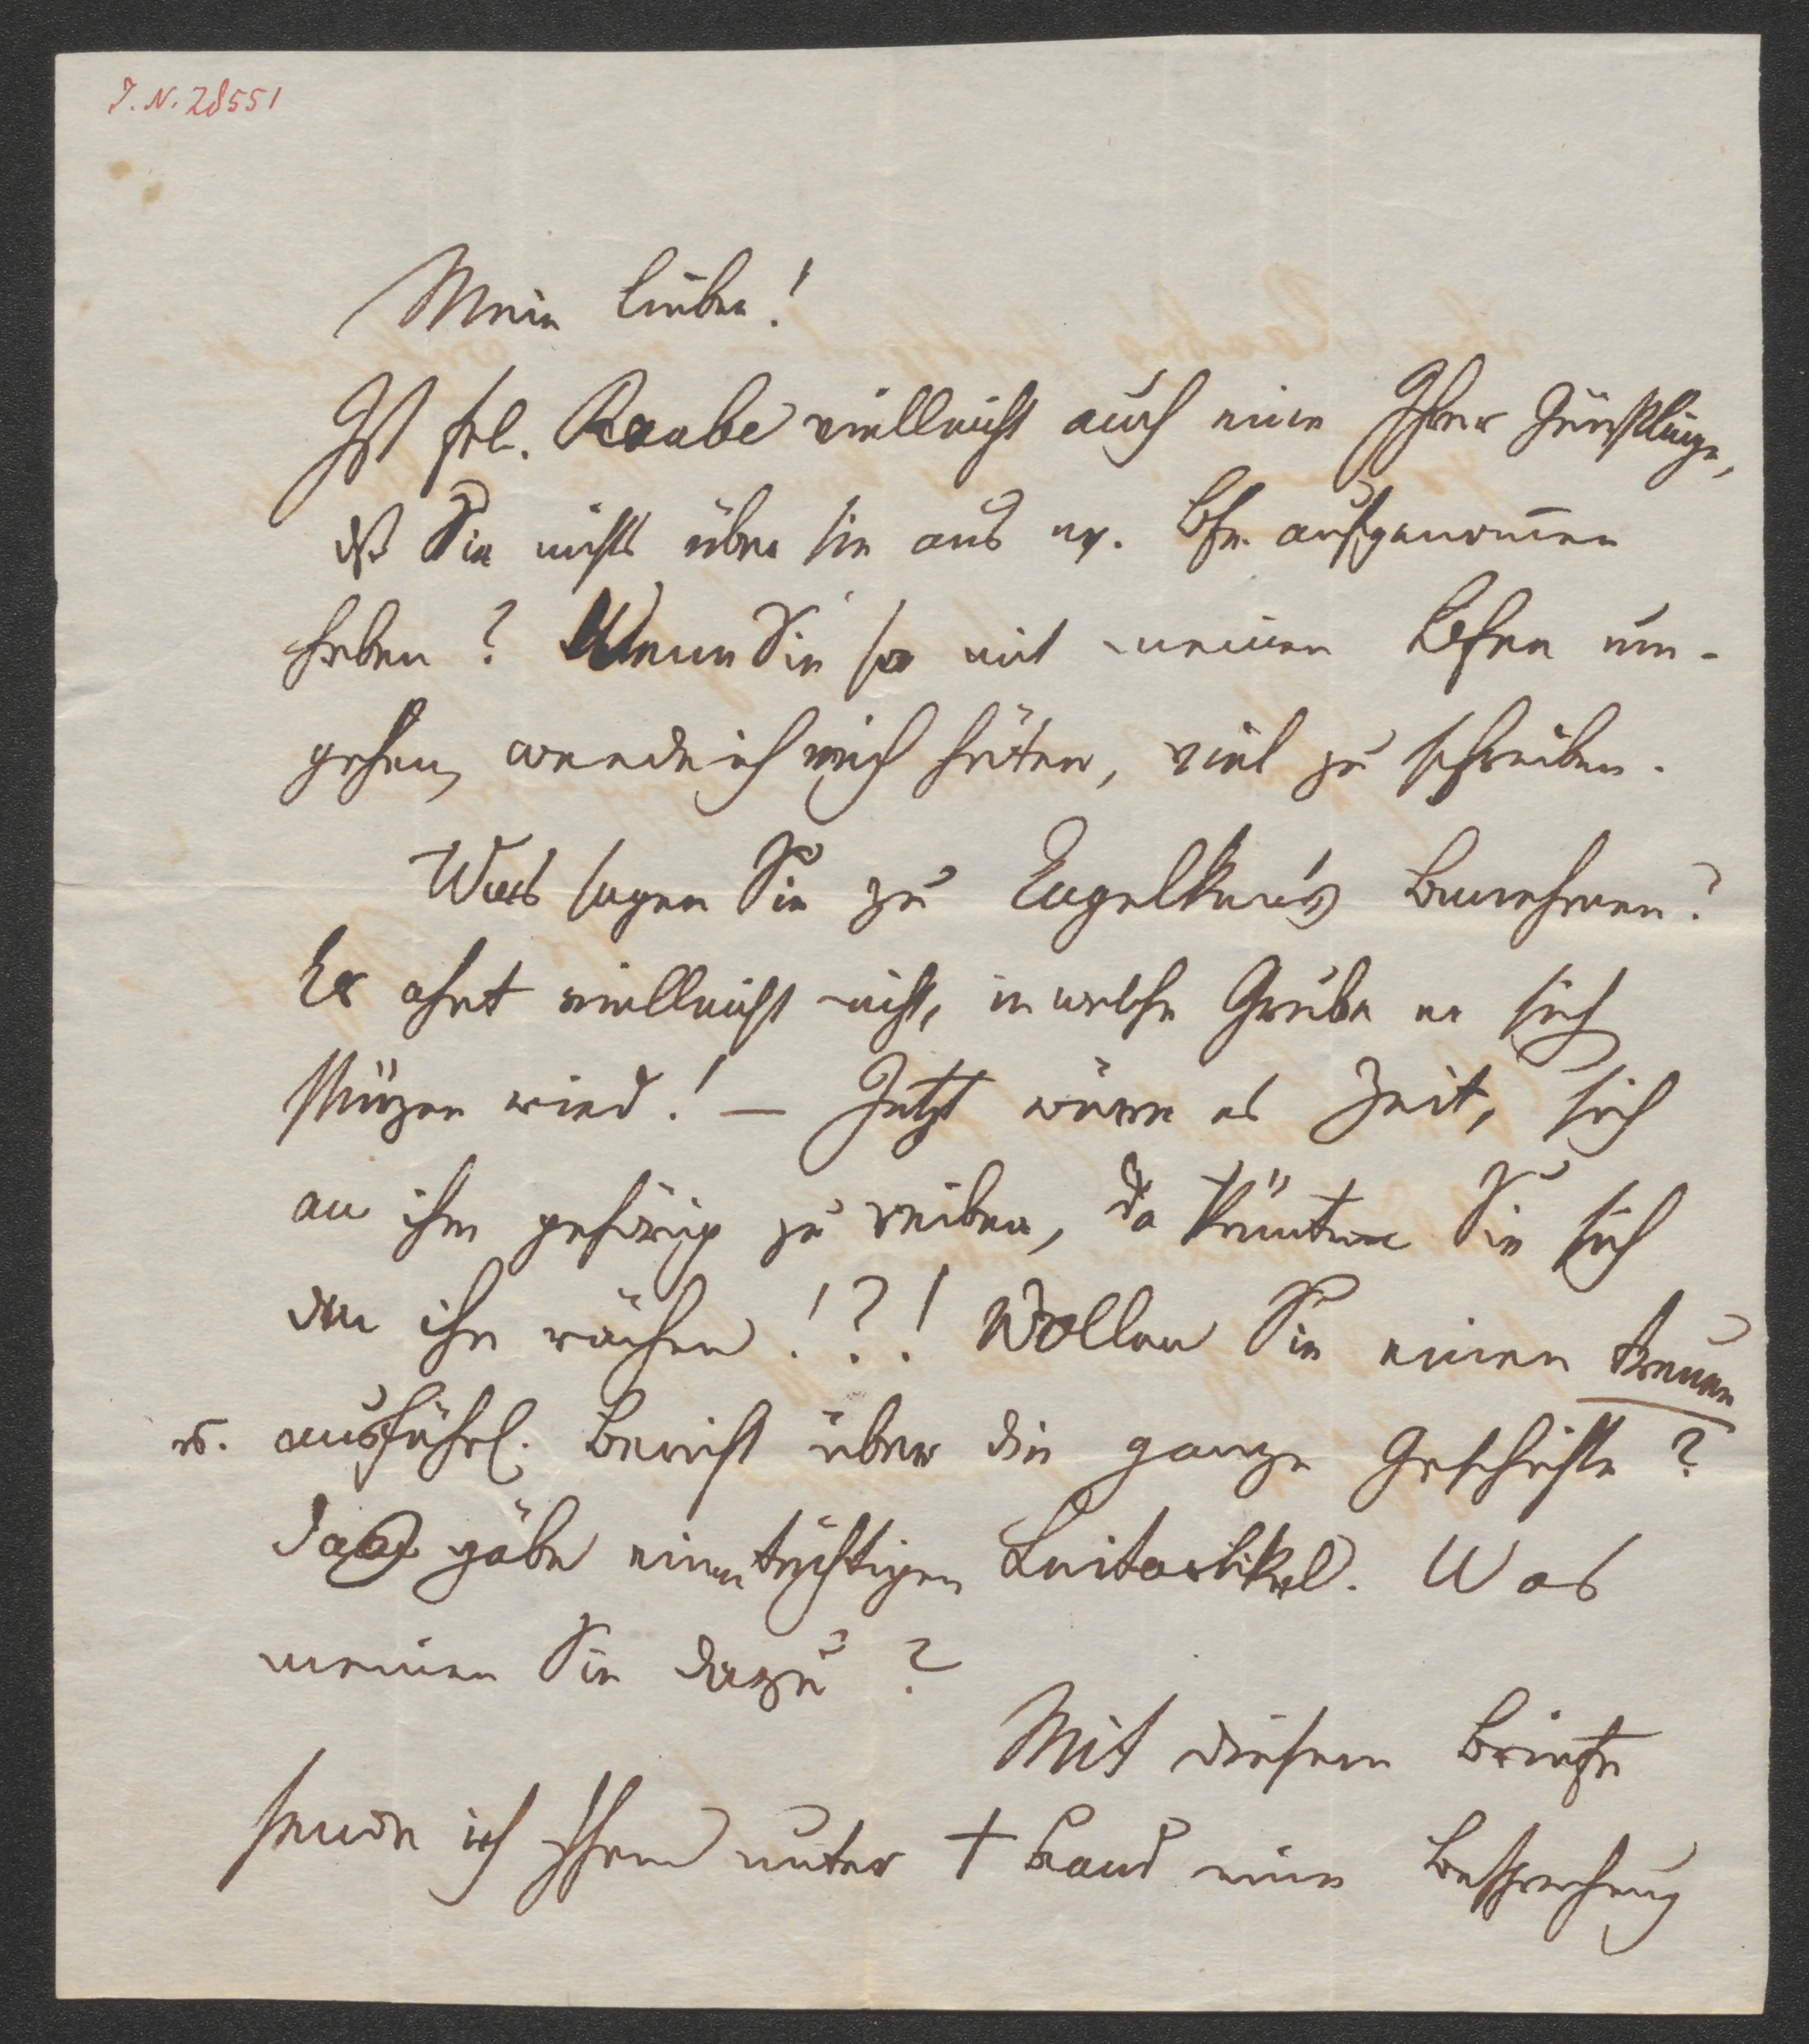 I. N. 28551
Mein lieber!
Ist Frl. Raabe vielleicht auch eine Ihrer Günstlinge,
dß Sie nichts über sie aus m. Bfe. aufgenom̅en
haben? Wenn Sie so mit meinen Bfen um-
gehen, werde ich mich hüten, viel zu schreiben.
Was sagen Sie zu Engelken's Benehmen?
Er ahnt vielleicht nicht, in welche Grube er sich
stürzen wird! — Jetzt wäre es Zeit, sich
an ihm gehörig zu reiben, da könnten Sie sich
an ihm rächen!?! Wollen Sie einen treuen
u. ausführl. Bericht über die ganze Geschichte?
Das gäbe einen tüchtigen Leitartikel. Was
meinen Sie dazu?
Mit diesem Briefe
sende ich Ihnen unter + Band eine Besprechung